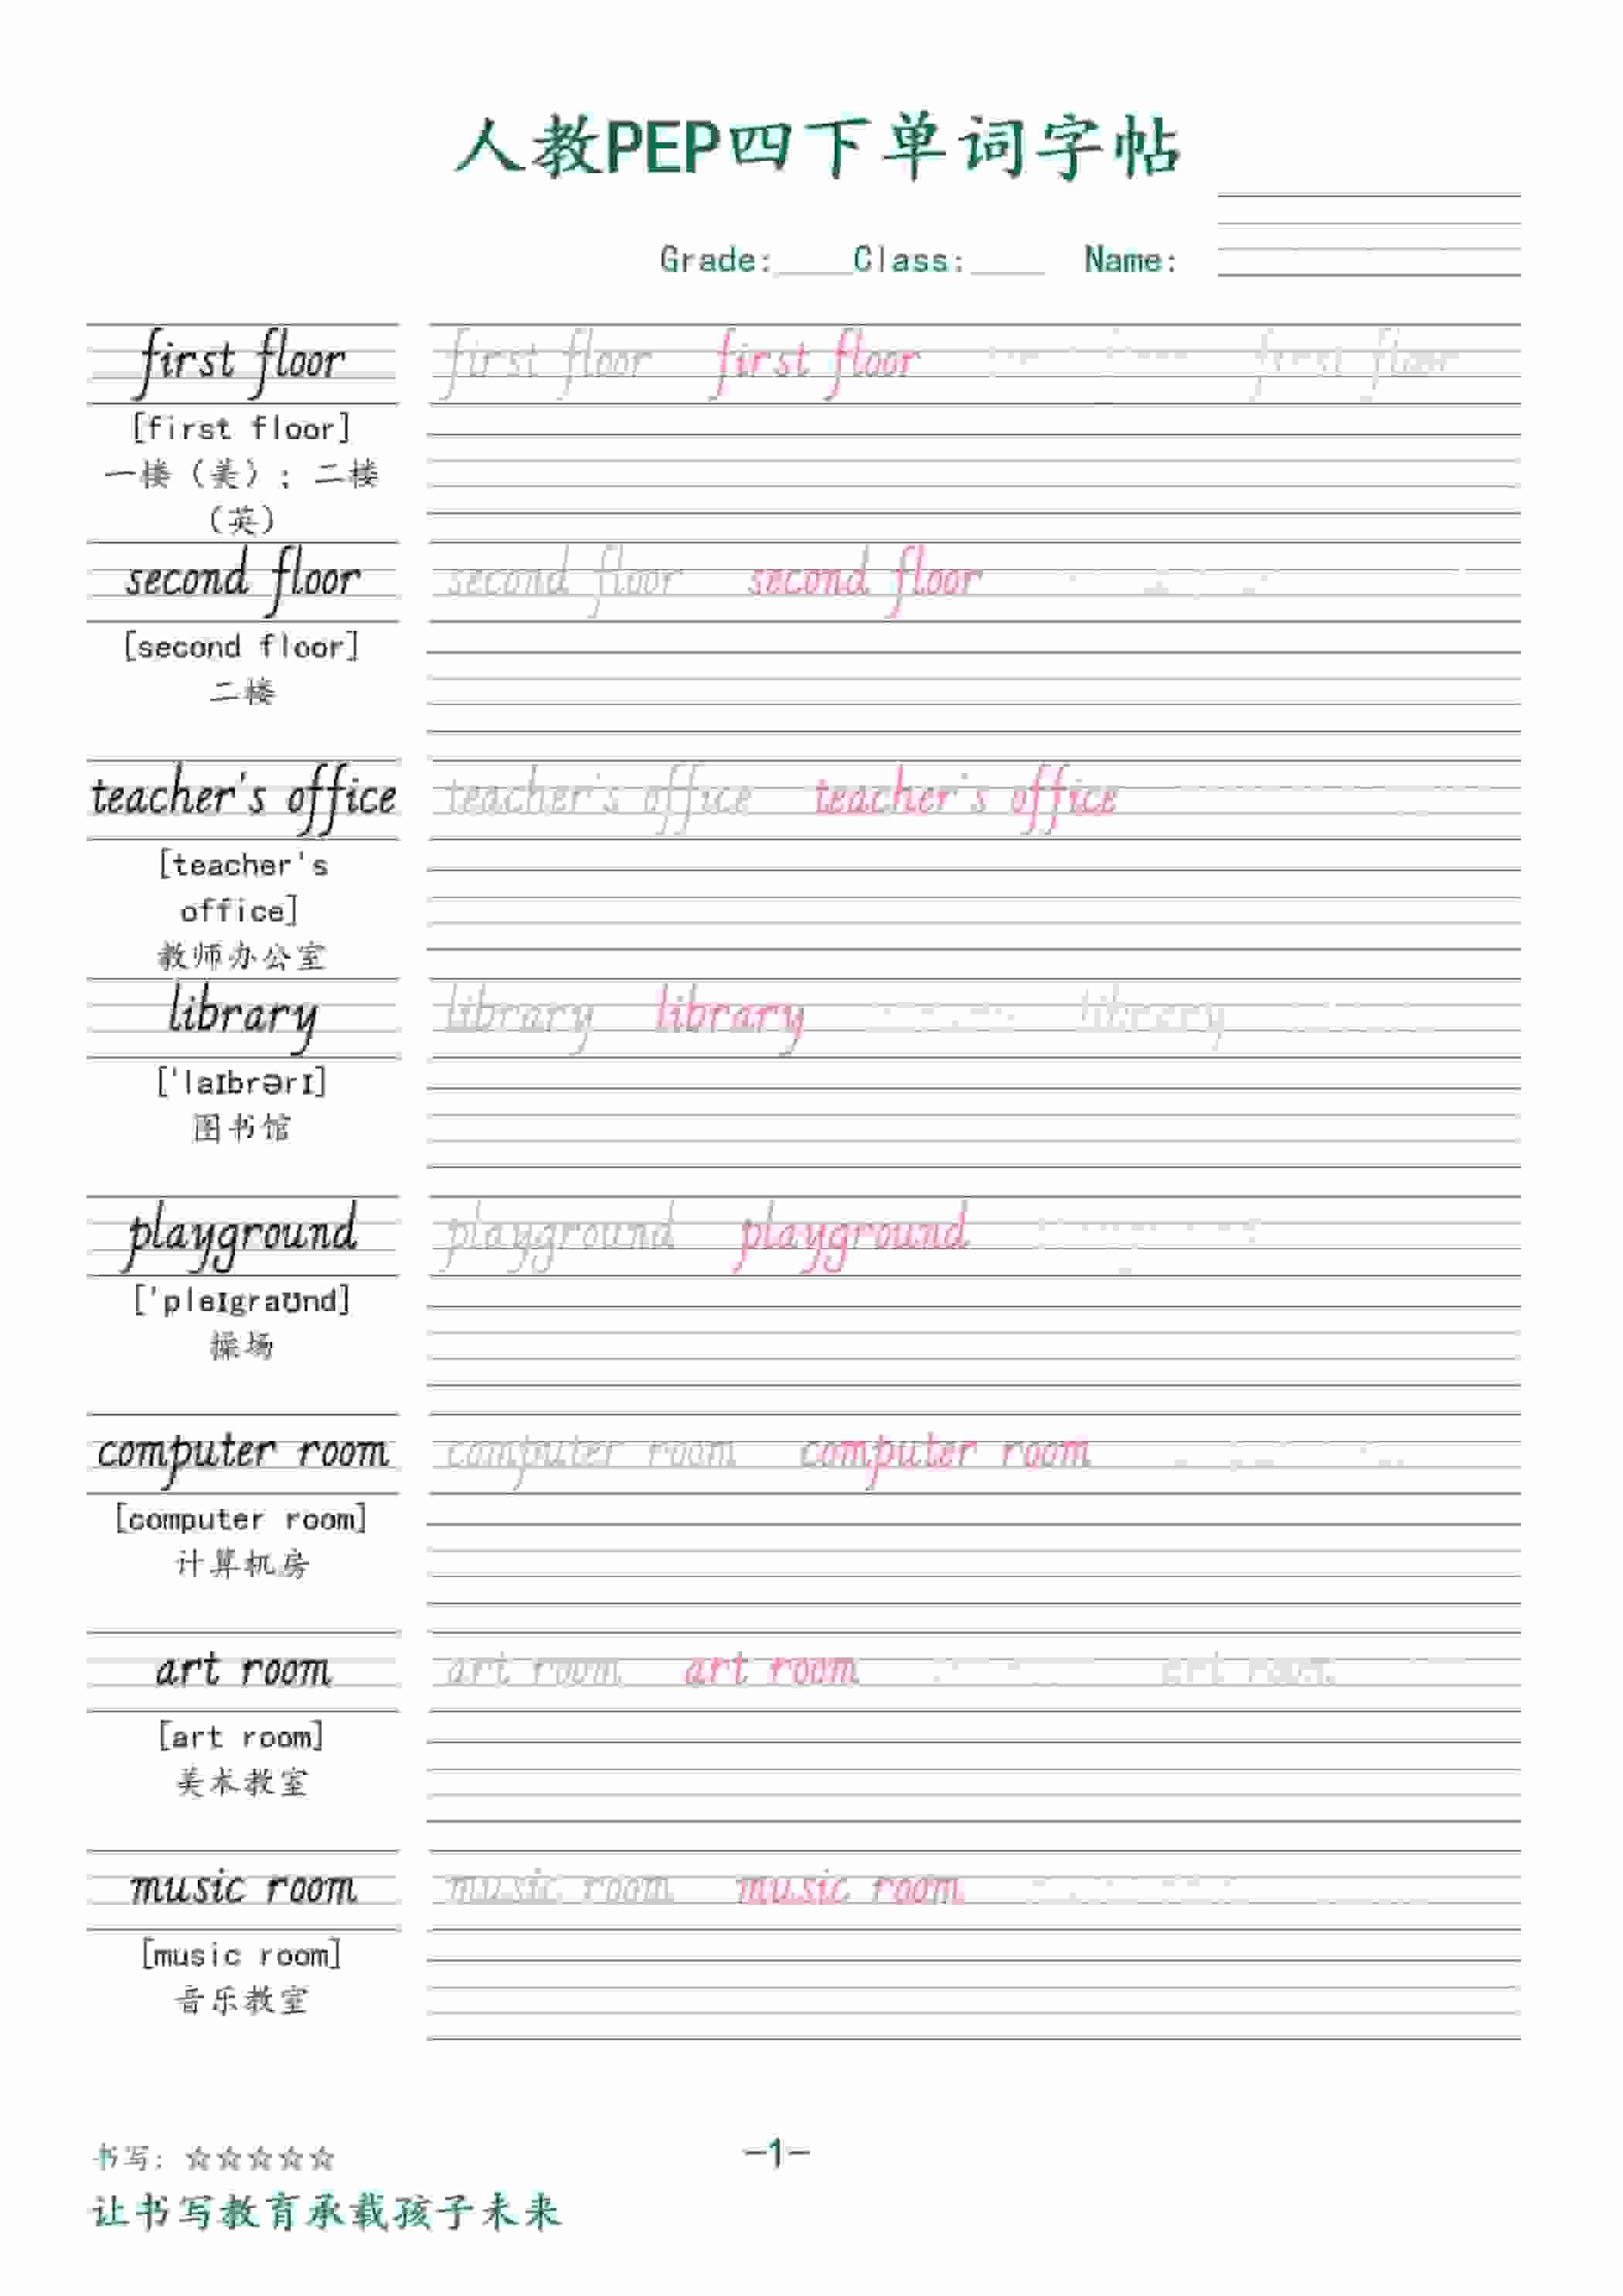 人教PEP四下单词字帖
Grade:____Class:____ Name:
first floor first floor first floor first floor
[first floor]
一楼（美）；二楼
（英）
second floor second floor second floor
[second floor]
二楼
teacher's office teacher's office teacher's office
[teacher's
office]
教师办公室
library library library library
['laɪbrərɪ]
图书馆
playground playground playground
['pleɪgraʊnd]
操场
computer room computer room computer room
[computer room]
计算机房
art room art room art room art room
[art room]
美术教室
music room music room music room
[music room]
音乐教室
书写：☆☆☆☆☆
-1-
让书写教育承载孩子未来